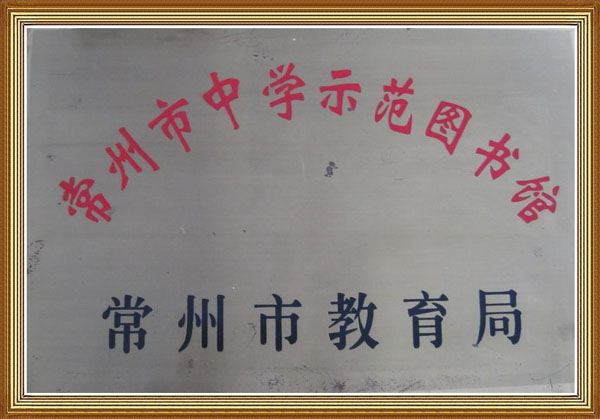 常州市中学示范图书馆
常州市教育局